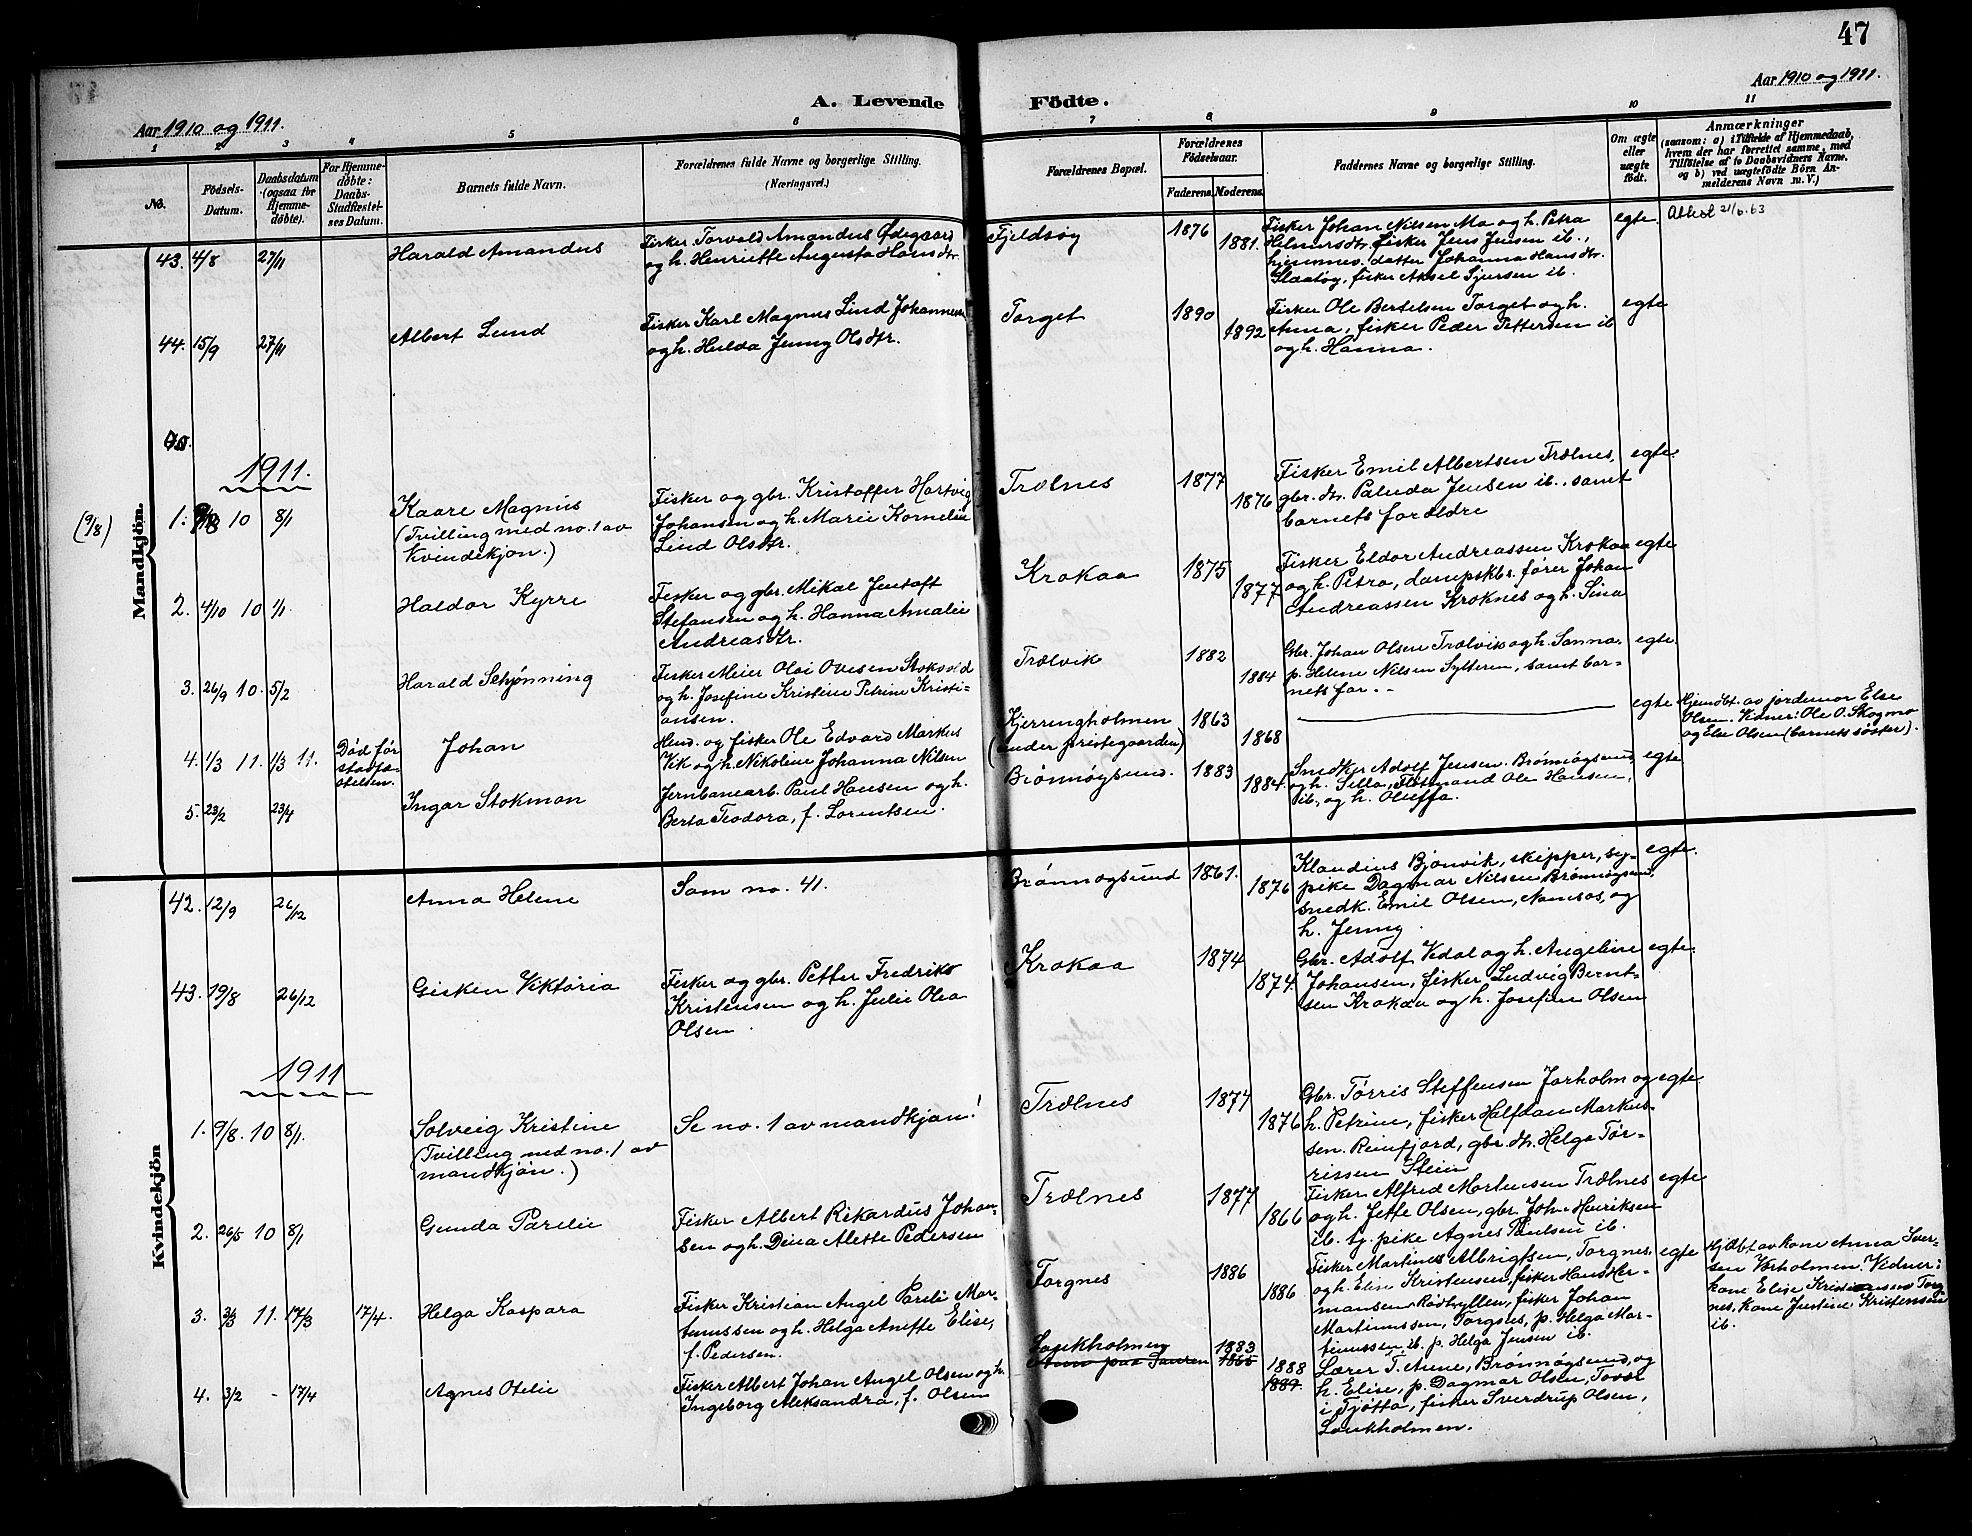 47
Aar 1910 og 1911.
A. Levende Födte.
Aar 1910 og 1911.
1 2 3 4 5 6 7 8 9 10 11
No.
Födsels-
Datum.
Daabsdatum
(ogsaa for
Hjemme-
døbte).
For Hjemme-
døbte:
Daabs-
Stadfæstel-
ses Datum.
Barnets fulde Navn.
Forældrenes fulde Navne og borgerlige Stilling.
(Næringsvei.)
Forældrenes Bopæl.
Forældrenes
Födselsaar.
Faderens. Moderens.
Faddernes Navne og borgerlige Stilling.
Om ægte
eller
uægte
født.
Anmærkninger
(saasom: a) i Tilfælde af Hjemmedaab,
hvem der har forrettet samme, med
Tilføielse af to Daabsvidners Navne.
og b) ved uægtefödte Börn An-
melderens Navn m. V.)
Mandkjön.
43. 4/8 27/11
Harald Amandus
Fisker Torvald Amandus Ødegaard
og h. Henriette Augusta Hansdtr.
Fjeldsøy
1876
1881.
Fisker Johan Nilsen Mo og h. Petra
Helmersdtr. fisker Jens Jensen ib.,
hjemmev. datter Johanna Hansdtr.
fisker Aksel Sjursen ib.
egte.
Attest 21/6.63
44. 15/9 27/11
Albert Lund
Fisker Karl Magnus Lind Johannesen
og h. Hulda Jenny Olsdtr.
Torget
1890
1892
Fisker Ole Bertelsen Torget og h.
Anna, fisker Peder Pettersen ib
og h. Hanna.
egte
1911.
(9/8)
1. 10 8/1
Kaare Magnus
(Tvilling med no. 1 av
Kvindekjøn.)
Fisker og gbr. Kristoffer Hartvig
Johansen og h. Marie Kornelie
Lind Olsdtr.
Trælnes
1877
1876
Fisker Emil Albertsen Trælnes,
gbr. dtr. Paluda Jensen ib., samt
barnets forældre
egte.
2. 4/10 10 1/1
Haldor Kyrre
Fisker og gbr. Mikal Jentoft
Stefansen og h. Hanna Amalie
Andreasdtr.
Krokaa
1875
1877
Fisker Eldor Andreassen Krokaa
og h. Petra, dampskbr. fører Johan
Andreassen Kroknes og h. Lina
egte
3. 26/9 10. 5/2
Harald Schjønning
Fisker Meier Olai Ovesen Stokvold
og h. Josefine Kristine Petrine Kristi-
ansen.
Trælvik
1882
1884
Gbr. Johan Olsen Trælvik og h. Sanna,
p. Helene Nilsen Sylteren, samt bar-
nets far. -
egte
4. 1/3 11. 1/3 11.
Død før
stadfæ-
stelsen.
Johan
Hmd. og fisker Ole Edvard Markus
Vik og h. Nikoline Johanna Nilsen
Kjerringholmen
(under prestegaarden)
1863
1868
egte
Hjemdbt. av jordemor Else
Olsen. Vidner: Ole O. Skogmo
og Else Olsen (barnets søster).
5. 23/2 23/4
Ingar Stokman
Jernbanearb. Paul Hansen og h.
Berta Teodora, f. Lorentsen.
Brønnøysund.
1883
1884.
Snedker Adolf Jensen. Brønnøysund
og h. Silla, Ole Hansen,
ib, og h. Oluffa.
egte
Kvindekjön
42. 12/9 26/12
Anna Helene
Som no. 41.
Brønnøysund
1861.
1876
Klaudius Bjønvik, skipper, sy-
pike Dagmar Nilsen Brønnøysund,
snedk. Emil Olsen, Namsos, og
h. Jenny.
egte.
43. 19/8 26/12
Gisken Viktoria
Fisker og gbr. Petter Fredrik
Kristensen og h. Julie Olea
Olsen.
Krokaa
1874
1874.
Gbr. Adolf Vedal og h. Angeline
Johansen, fisker Ludvig Bernt-
sen Krokaa og h. Josefine Olsen
egte.
1911
1. 9/8. 10 8/1.
Solveig Kristine
(Tvilling med no. 1 av
mandkjøn.)
Se no. 1 av mandkjøn!
Trælnes
1877
1876
Gbr. Tørris Steffensen Jorholm og
h. Petrine, fisker Halfdan Markus-
sen. Reinfjord, gbr. dtr. Helga Tør-
rissen Stein
egte.
2. 26/5 10 8/1
Gunda Parelie
Fisker Albert Rikardus Johan-
sen og h. Dina Alette Pedersen
Trælnes
1877
1866
Fisker Alfred Mortensen Trælnes
og h. Jette Olsen, gbr. Joh. Henriksen
ib. ty. pike Agnes Paulsen ib.
egte
3. 3/3 11. 17/3 17/4.
Helga Kaspara
Fisker Kristian Angel Pareli Mar-
tinussen og h. Helga Anette Elise,
f. Pedersen.
Torgnes
1886
1886
Fisker Martinus Albrigtsen, Torgnes,
og h. Elise Kristensen, fisker Hans Her-
mansen Rødhyllen, fisker Johan
Martinussen, Torgnes, p. Helga Mar-
tinussen, ib. p. Helga Jensen ib.
egte
Hjdbt av kone Anna Iver-
sen Vorholmen. Vidner:
kone Elise Kristiansen Torg
nes, kone Justine Kristensen
ib.
4. 3/2 - 17/4
Agnes Otelie
Fisker Albert Johan Angel Olsen og h.
Ingeborg Aleksandra, f. Olsen
Laukholmen
1883
1865
1888
1887.
Lærer T. Aune, Brønnøysund, og
h. Elise, p. Dagmar Olsen, Tovær
i Tjøtta, fisker Sverdrup Olsen,
Laukholmen.